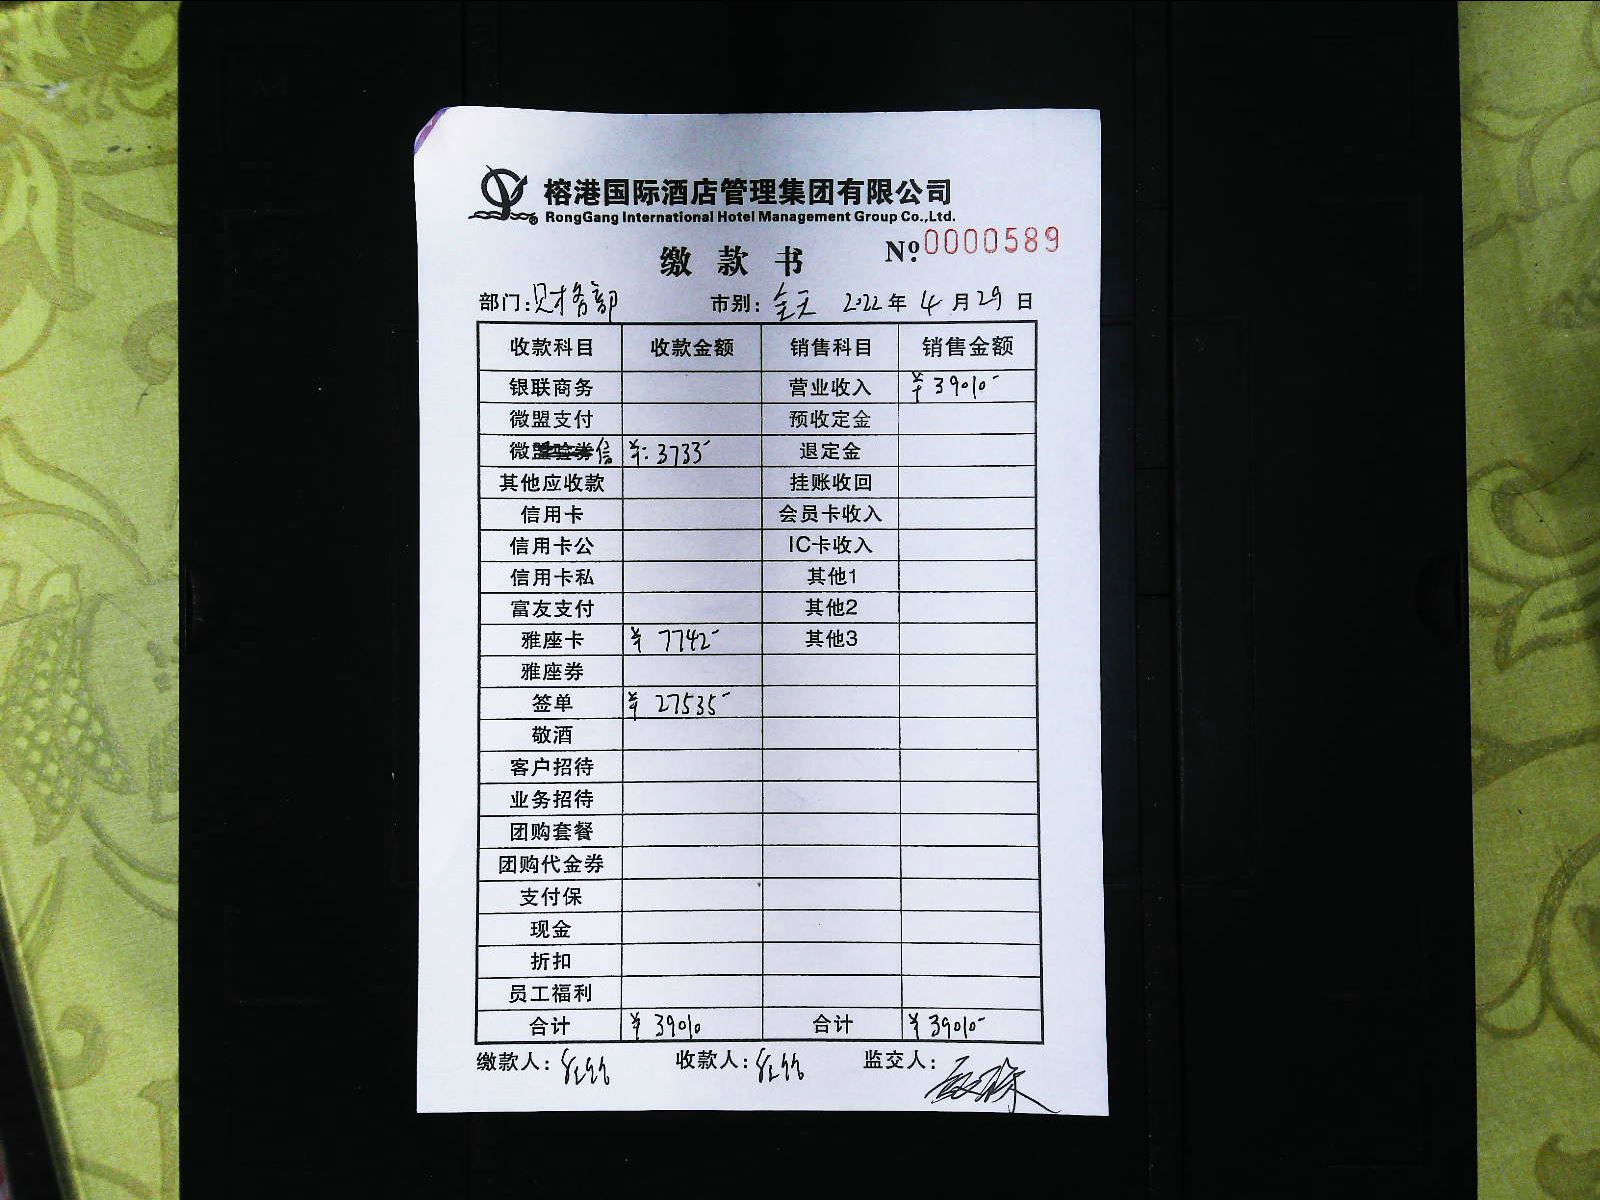 榕港国际酒店管理集团有限公司
RongGang International Hotel Management Group Co.,Ltd.
缴款书 №0000589
部门:财务部 市别:全天 2022年4月29日
收款科目 收款金额 销售科目 销售金额
银联商务 营业收入 ¥39010-
微盟支付 预收定金
微信 ¥:3733- 退定金
其他应收款 挂账收回
信用卡 会员卡收入
信用卡公 IC卡收入
信用卡私 其他1
富友支付 其他2
雅座卡 ¥7742- 其他3
雅座券
签单 ¥27535-
敬酒
客户招待
业务招待
团购套餐
团购代金券
支付保
现金
折扣
员工福利
合计 ¥39010 合计 ¥39010-
缴款人: 收款人: 监交人: